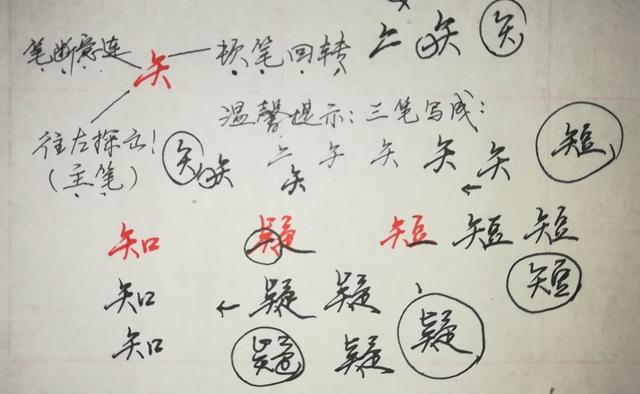 笔断意连 矢 顿笔回转 𠂉 矢 矢
往左探出！ 温馨提示：三笔写成：
（主笔） 矢 矢 𠂉 矢 矢 矢 矢 短
矢
知 疑 短 短 短
知 疑 疑 短
知 疑 疑 疑